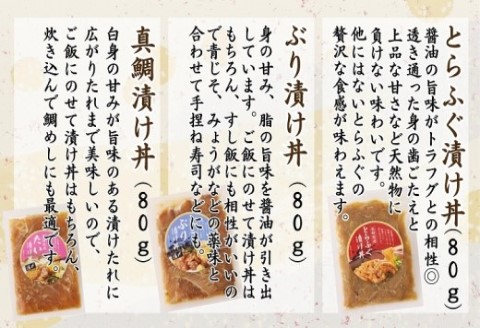 とらふぐ漬け丼(80g)
醤油の旨味がトラフグとの相性◎
透き通った身の歯ごたえと
上品な甘さなど天然物に
負けない味わいです。
他にはないとらふぐの
贅沢な食感が味わえます。
ぶり漬け丼(80g)
身の甘み、脂の旨味を醤油が引き出
しています。ご飯にのせて漬け丼は
もちろん、すし飯にも相性がいいの
で青じそ、みょうがなどの薬味と
合わせて手捏ね寿司などにも。
真鯛漬け丼(80g)
白身の甘みが旨味のある漬けたれに
広がりたれまで美味しいので、
ご飯にのせて漬け丼はもちろん、
炊き込んで鯛めしにも最適です。
とらふぐ
漬け丼